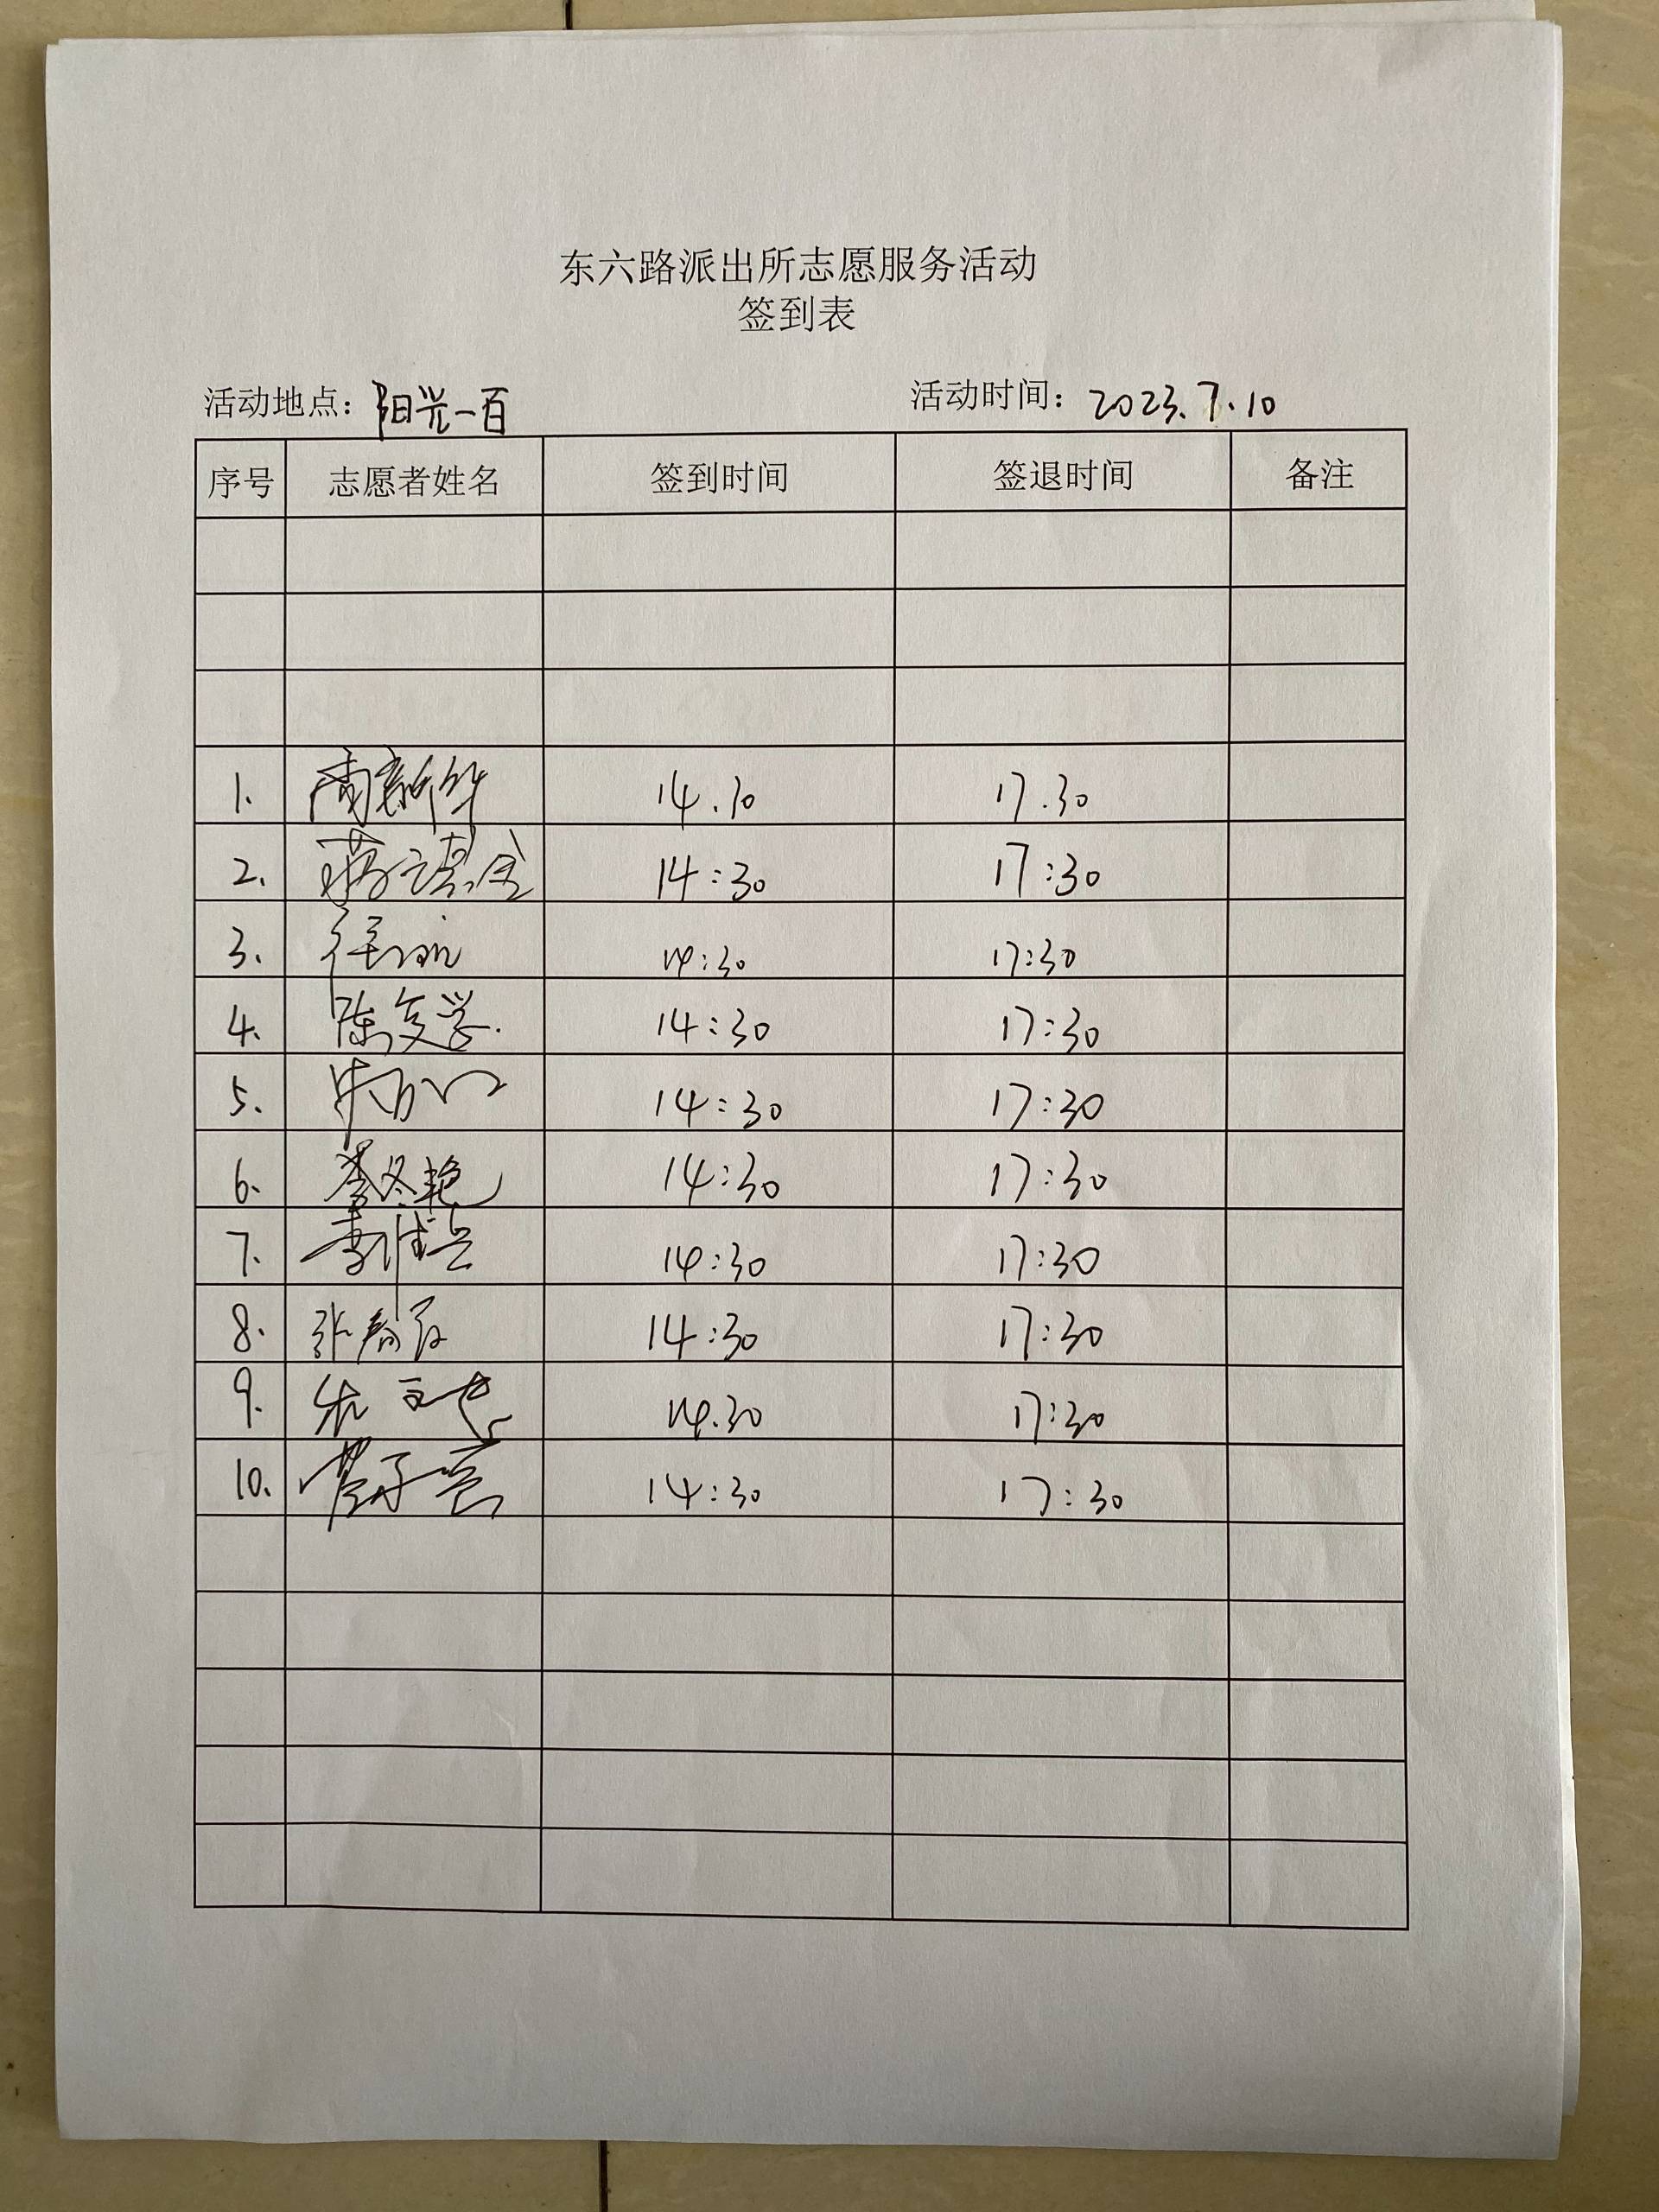 东六路派出所志愿服务活动
签到表
活动地点：阳光一百 活动时间：2023.7.10
序号 志愿者姓名 签到时间 签退时间 备注
1. 14.30 17.30
2. 14:30 17:30
3. 14:30 17:30
4. 陈文学 14:30 17:30
5. 14:30 17:30
6. 李冬艳 14:30 17:30
7. 14:30 17:30
8. 14:30 17:30
9. 14.30 17:30
10. 14:30 17:30